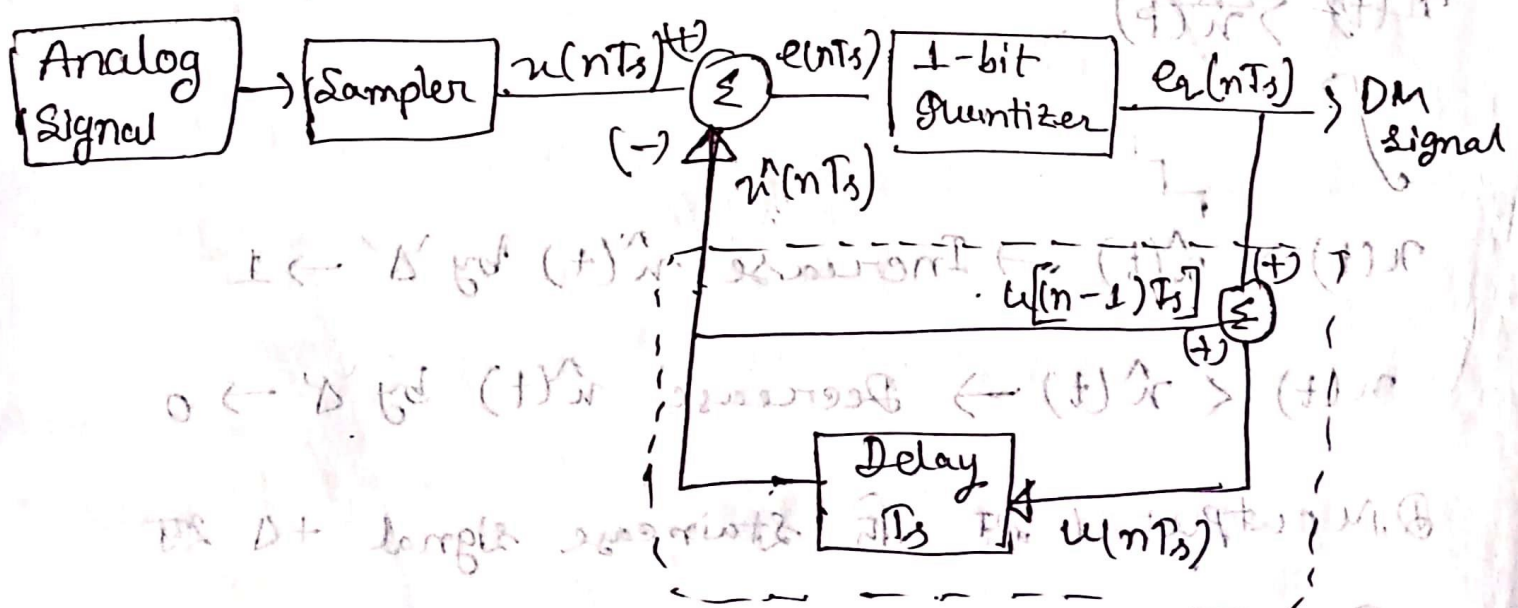 Analog Signal
Sampler
x(nTs) (+)
Σ
e(nTs)
1-bit Quuntizer
eq(nTs)
DM signal
(-)
x^(nTs)
u[(n-1)Ts]
(+)
Σ
(+)
Delay Ts
u(nTs)